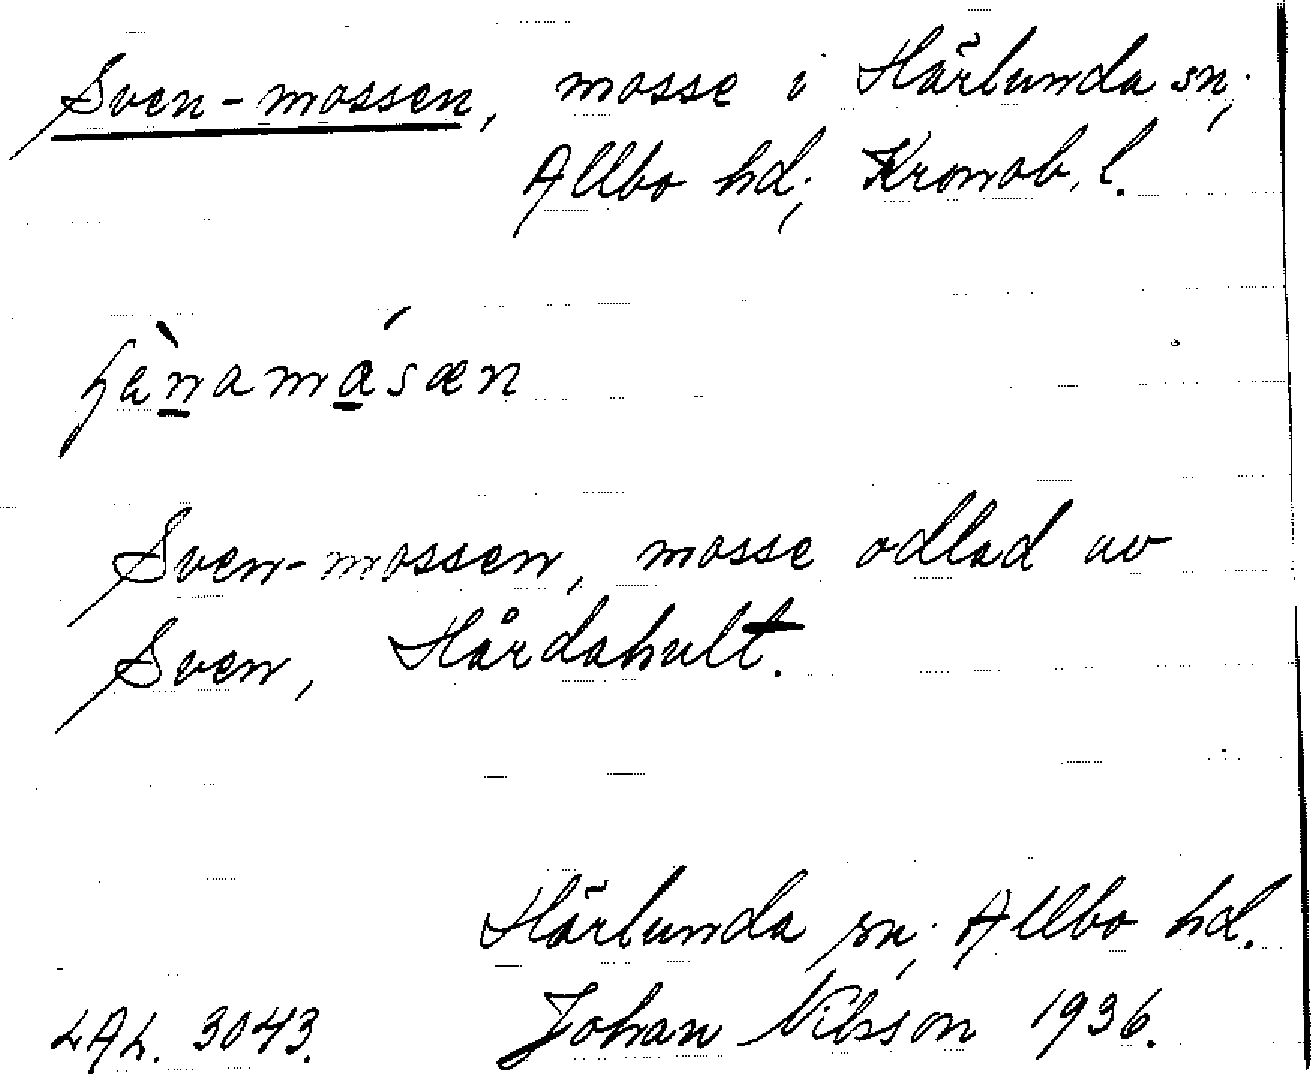 Sven-mossen, mosse i Härlunda sn;
Allbo hd; Kronob. l.
Sven-mossen, mosse odlad av
Sven, Hårdahult.
Härlunda sn; Allbo hd.
LAL. 3043. Johan Nilsson 1936.